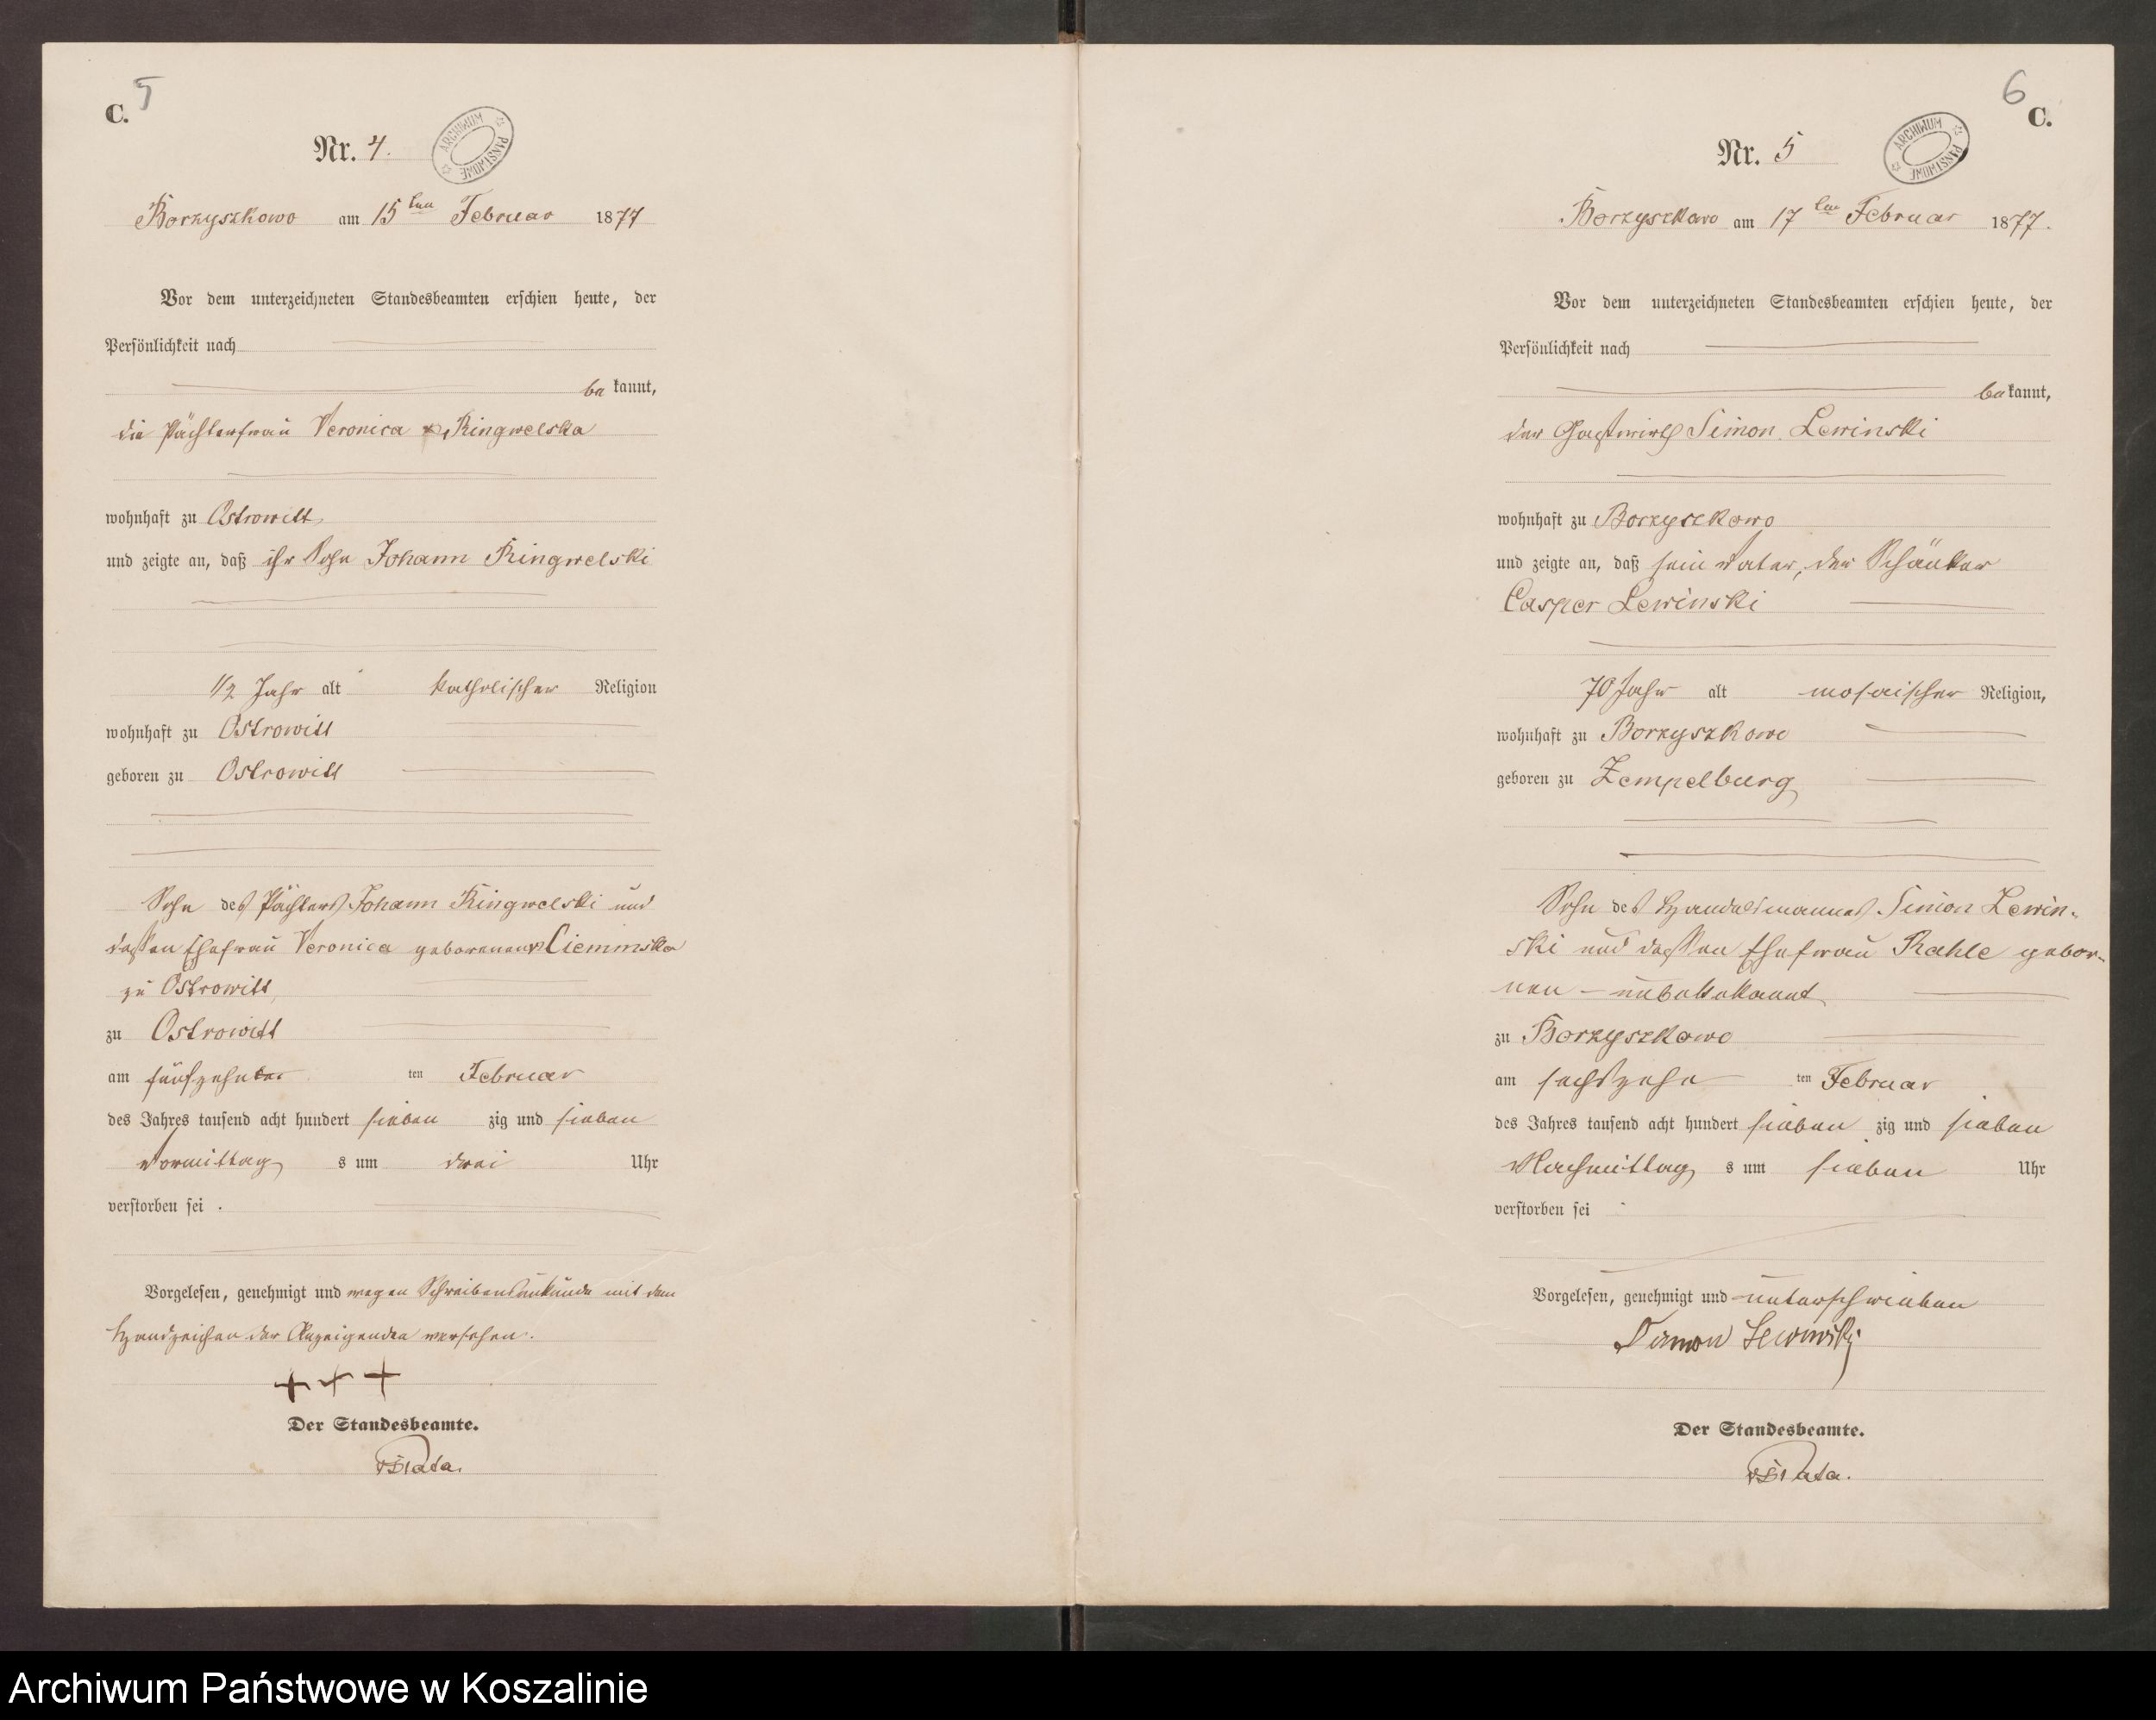 5
C.
Nr. 4.
ARCHIWUM PAŃSTWOWE
Borzyszkowo am 15ten Februar 1877
Vor dem unterzeichneten Standesbeamten erschien heute, der
Persönlichkeit nach
be kannt,
die Pächterfrau Veronica Ringwelska
wohnhaft zu Ostrowitt
und zeigte an, daß ihr Sohn Johann Ringwelski
1/2 Jahr alt katholischer Religion
wohnhaft zu Ostrowitt
geboren zu Ostrowitt
Sohn des Pächters Johann Ringwelski und
dessen Ehefrau Veronica geborenen Ciemmska
zu Ostrowitt
zu Ostrowitt
am fünfzehnten ten Februar
des Jahres tausend acht hundert sieben zig und sieben
Vormittag s um drei Uhr
verstorben sei .
Vorgelesen, genehmigt und wegen Schreibensunkunde mit dem
Handzeichen der Anzeigenden versehen.
+ + +
Der Standesbeamte.
6
C.
Nr. 5
ARCHIWUM PAŃSTWOWE
Borzyszkowo am 17ten Februar 1877.
Vor dem unterzeichneten Standesbeamten erschien heute, der
Persönlichkeit nach
be kannt,
der Gastwirth Simon Lewinski
wohnhaft zu Borzyszkowo
und zeigte an, daß sein Vater, der Schänker
Casper Lewinski
70 Jahr alt mosaischer Religion,
wohnhaft zu Borzyszkowo
geboren zu Zempelburg
Sohn des Handelsmannes Simon Lewin-
ski und dessen Ehefrau Rahle gebor-
nen – unbekannt
zu Borzyszkowo
am sechszehn ten Februar
des Jahres tausend acht hundert sieben zig und sieben
Nachmittag s um sieben Uhr
verstorben sei
Vorgelesen, genehmigt und unterschrieben
Simon Lewinski
Der Standesbeamte.
Archiwum Państwowe w Koszalinie